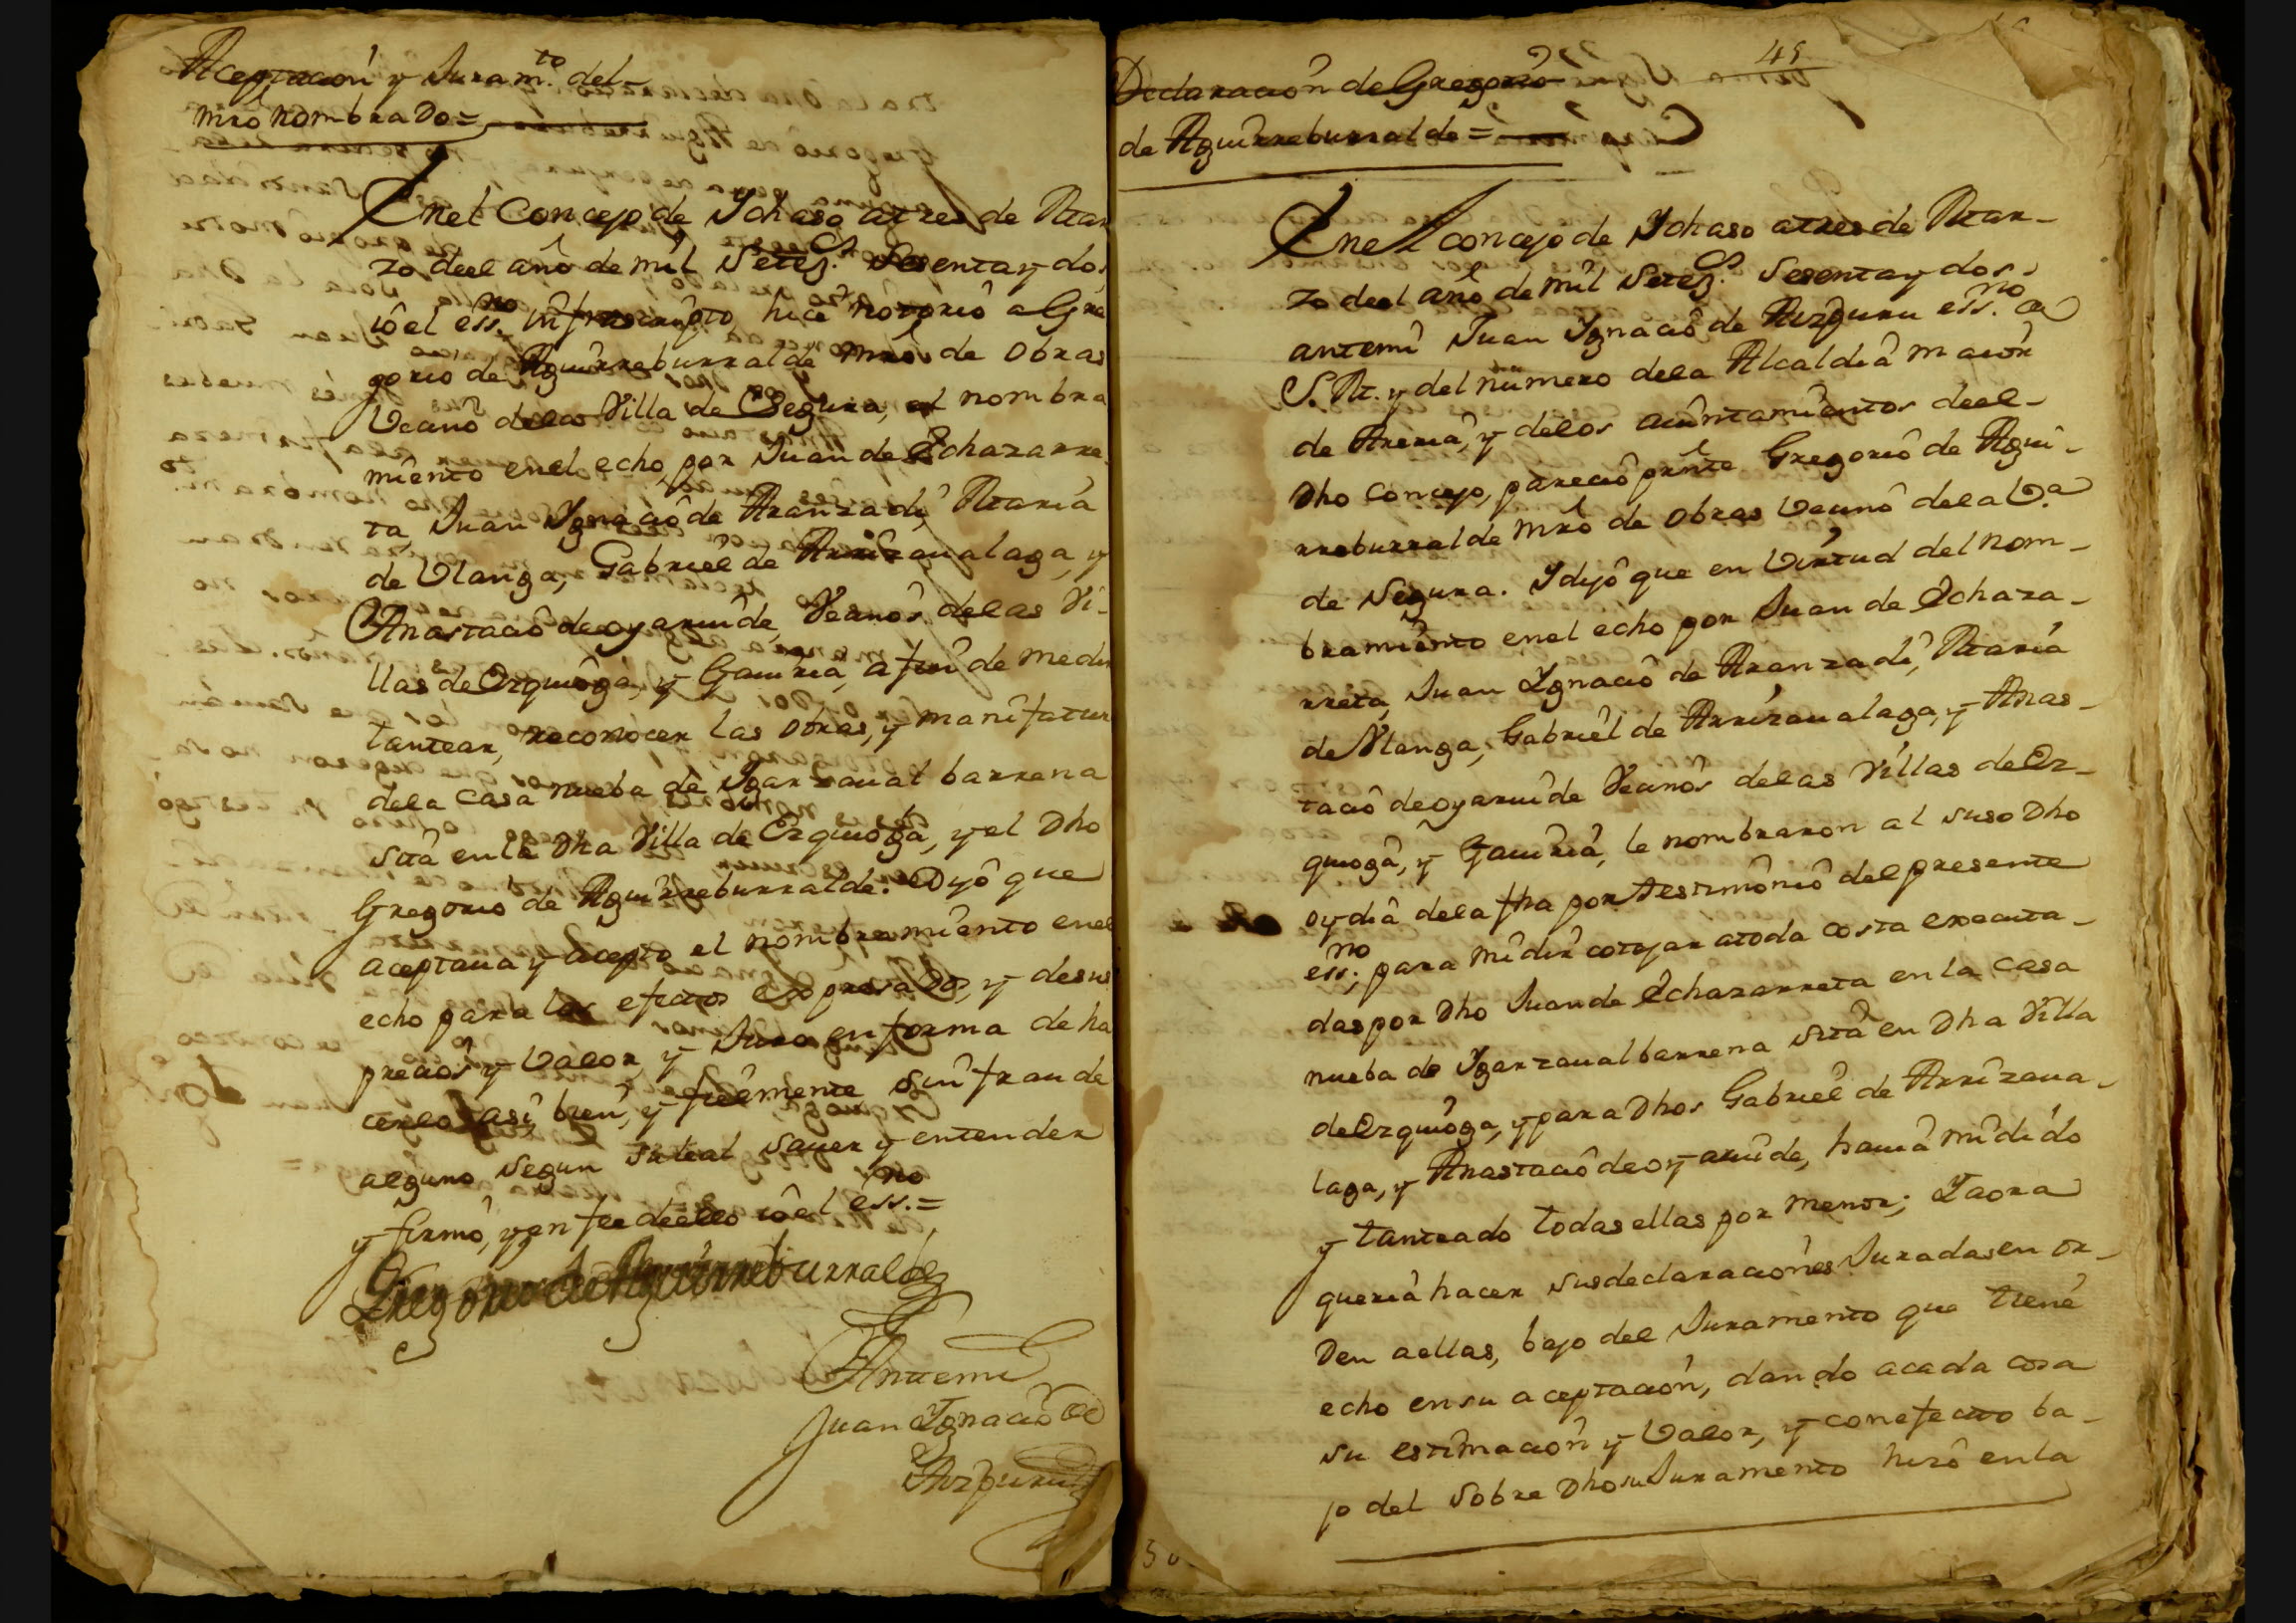 Aceptación y Juram.to del
mrô nombrado =
En el Concejo de Ychaso a tres de Mar
zo deel año de mil Setez.s Sesenta y dos
io el ess.no infrascripto hice notorio a Gre
gorio de Aguirreburralde mrô de obras
Vecino dela Villa de Segura, el nombra
miento enel echo por Juan de Echazarre
ta, Juan Ygnacio de Aranzadi, Maria
de Vlanga, Gabriel de Arrizaualaga, y
Anastacio de oyaruide, Vecinos delas Vi-
llas de Ezquioga, y Gauiria, a fin de medir
tantear, reconocer las obras, y manifatur
dela casa nueba de Ygarzaual barrena
sita en la Dha Villa de Ezquioga, y el Dho
Gregorio de Aguirreburralde. Dijo que
aceptaua y acepto el nombramiento enel
echo para los efectos expresados, y desus
precios y Valor, y Juro en forma de ha
cerlo asi bien, y fielmente sin fraude
alguno segun su leal sauer y entender
y firmó, y en fee deello io el ess.no =
Gregorio de Aguirreburralde
Antemi
Juan Ygnacio de
Aizpuru
49
Declaración de Gregorio
de Aguirreburralde =
En el concejo de Ychaso a tres de Mar-
zo deel año de mil Setez.s Sesenta y dos
antemi Juan Ygnacio de Aizpuru ess.no de
S. M. y del número dela Alcaldia maior
de Areria, y delos aiuntamientos deel
Dho concejo, pareció prnte Gregorio de Agui-
rreburralde mrô de obras Vecino dela V.a
de Segura. Y dijo que en Virtud del nom-
bramiento enel echo por Juan de Echaza-
rreta, Juan Ygnacio de Aranzadi, Maria
de Vlanga, Gabriel de Arrizaualaga, y Anas-
tacio de oyaruide Vecinos delas Villas de Ez-
quioga, y Gauiria, le nombraron al suso Dho
oy dia dela fha por testimonio del presente
ess.no; para midir cotejar a toda costa executa-
das por Dho Juan de Echazarreta en la casa
nueba de Ygarzaual barrena sita en Dha Villa
de Ezquioga, y para Dhos Gabriel de Arrizaua-
laga, y Anastacio de oyaruide, hauia midido
y tanteado todas ellas por menor; Y aora
queria hacer sus declaraciones Juradas en or-
den a ellas, bajo del Juramento que tiene
echo en su aceptación, dando a cada cosa
su estimación y Valor, y con efecto ba-
jo del sobre Dho su Juramento hizo en la
50